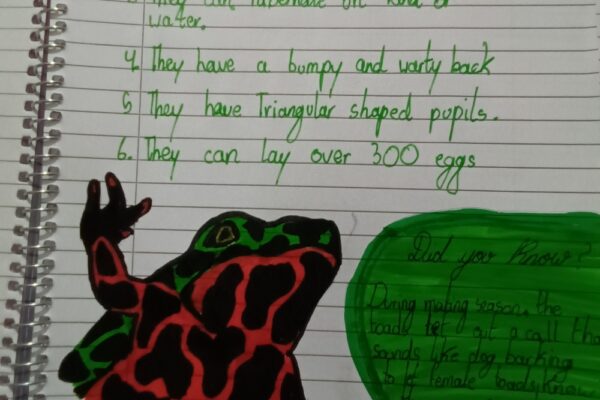 3 They can hibernate on land or
water.
4 They have a bumpy and warty back
5 They have Triangular shaped pupils.
6. They can lay over 300 eggs
Did you Know?
During mating season, the
toads let out a call tha
sounds like dog barking
to female toads, know